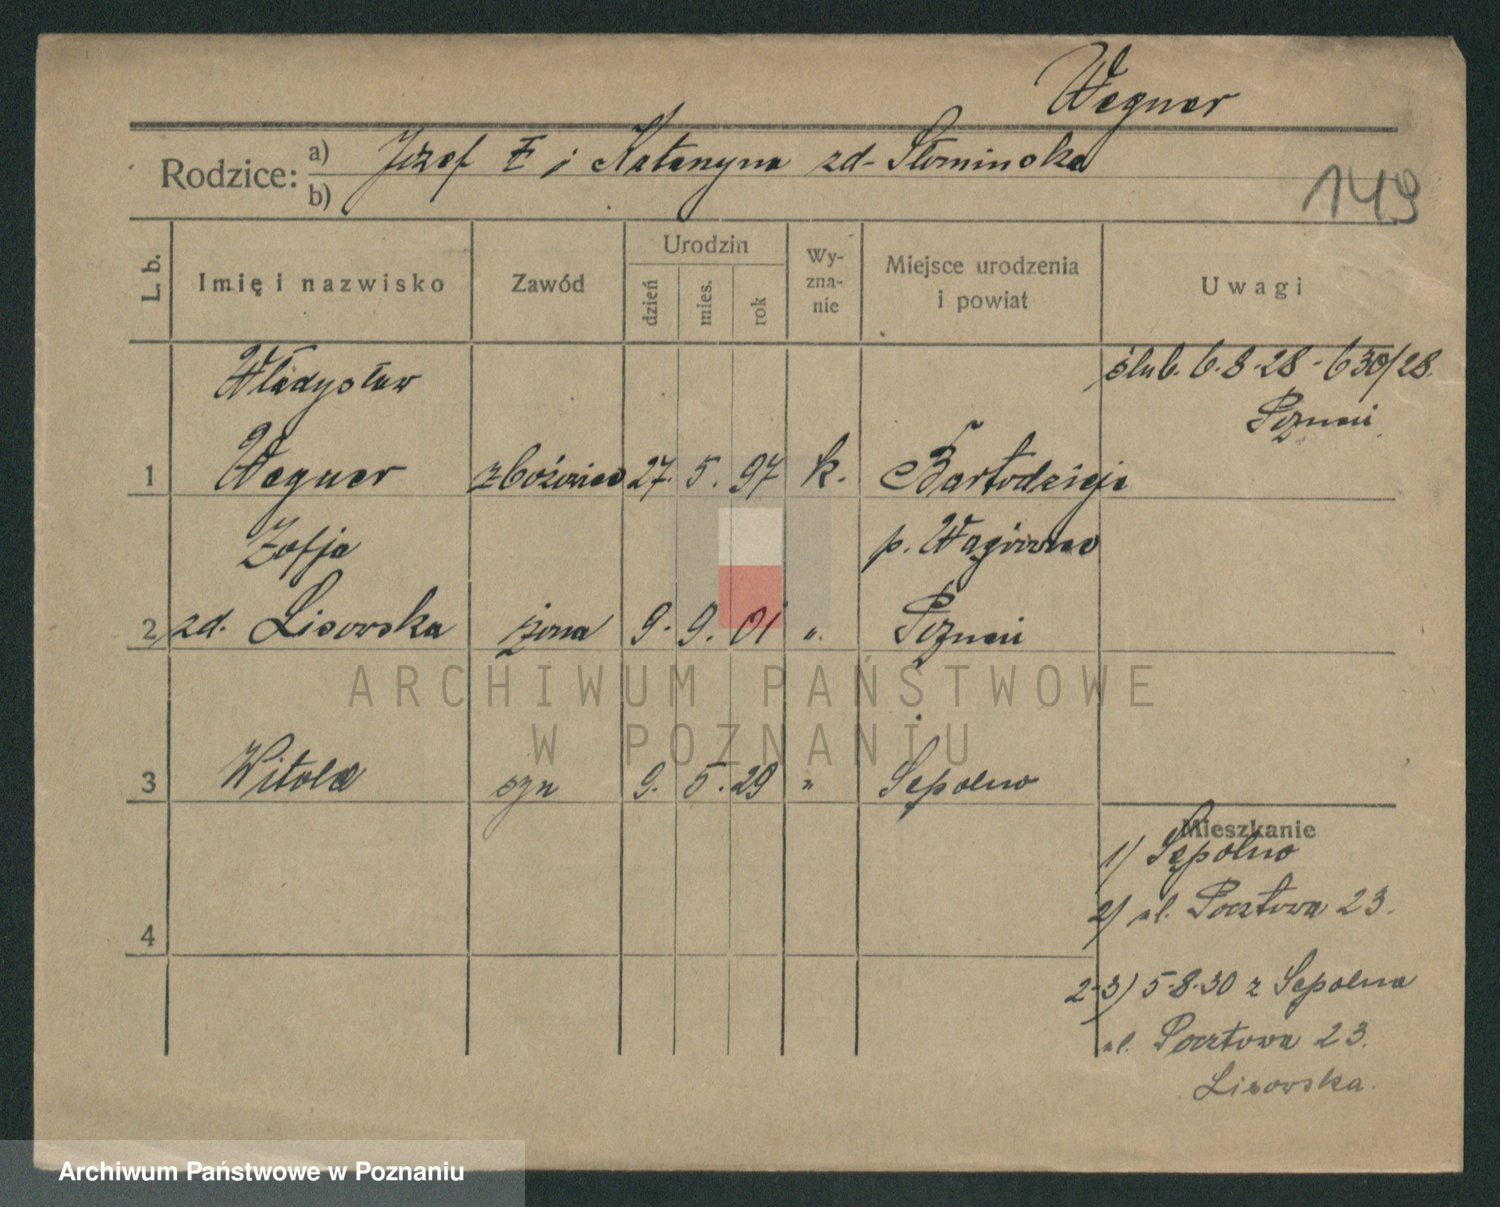 Wegner
Rodzice: a) Józef E i Katarzyna zd. Słomińska
b)
149
L. b. Imię i nazwisko Zawód Urodzin dzień mies. rok Wy-zna-nie Miejsce urodzenia i powiat Uwagi
Władysław ślub. 6.8.28 - 630/28.
Poznań
1 Wegner zbożowiec 27. 5. 97 k. Bartodzieje
Zofja p. Wągrowiec
2 zd. Lisowska żona 9. 9. 01 „ Poznań
ARCHIWUM PAŃSTWOWE
W POZNANIU
3 Witold syn 9. 5. 29 „ Sępolno
Mieszkanie
1) Sępolno
2) ul. Pocztowa 23.
4
2-3) 5.8.30 z Sępolna
ul. Pocztowa 23.
Lisowska.
Archiwum Państwowe w Poznaniu